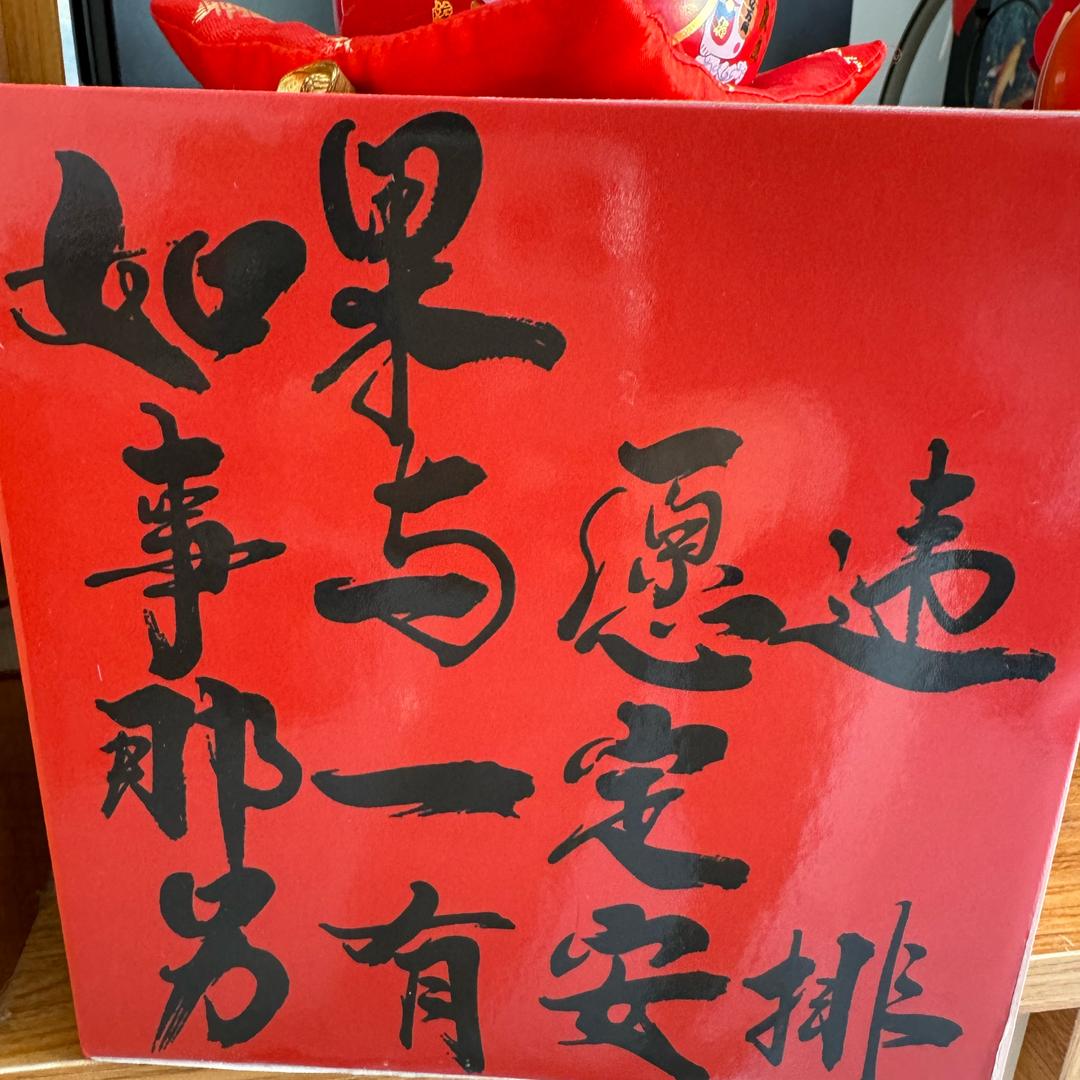 如果
事与愿违
那一定
另有安排